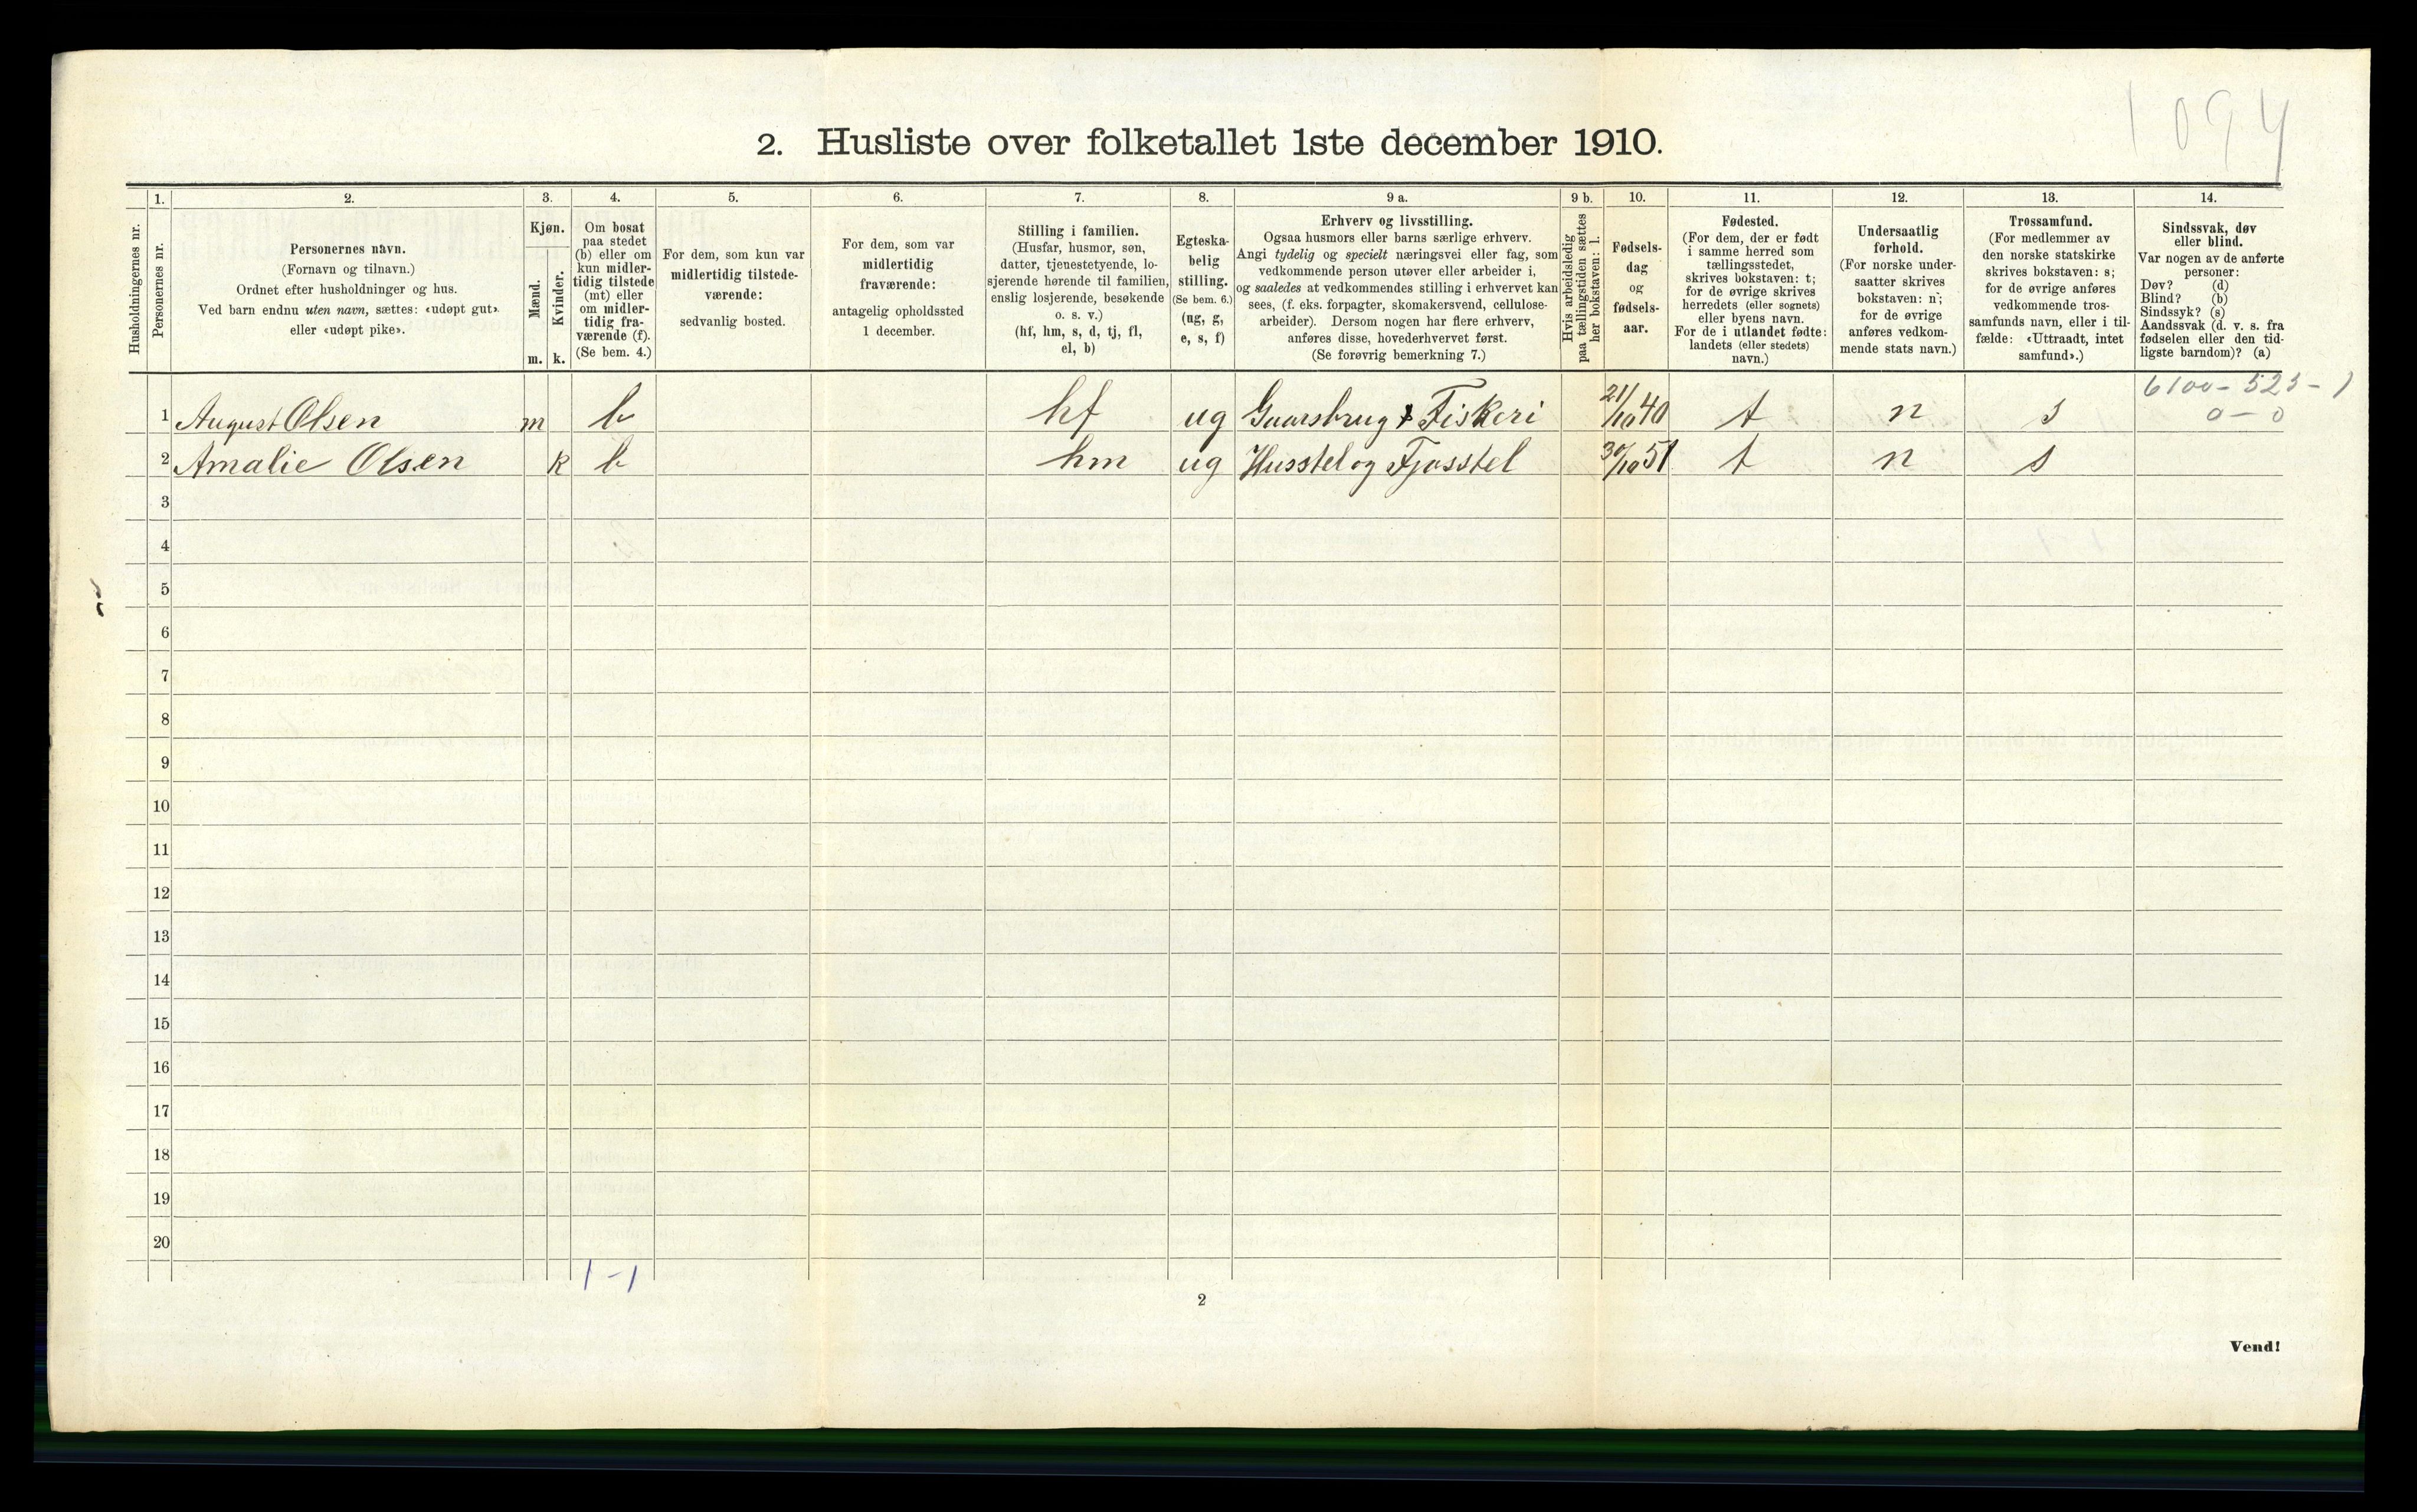 1094
2. Husliste over folketallet 1ste december 1910.
1. 2. 3. 4. 5. 6. 7. 8. 9 a. 9 b. 10. 11. 12. 13. 14.
Husholdningernes nr.
Personernes nr.
Personernes navn.
(Fornavn og tilnavn.)
Ordnet efter husholdninger og hus.
Ved barn endnu uten navn, sættes: «udøpt gut»
eller «udøpt pike».
Kjøn.
Mænd.
Kvinder.
m. k.
Om bosat
paa stedet
(b) eller om
kun midler-
tidig tilstede
(mt) eller
om midler-
tidig fra-
værende (f).
(Se bem. 4.)
For dem, som kun var
midlertidig tilstede-
værende:
sedvanlig bosted.
For dem, som var
midlertidig
fraværende:
antagelig opholdssted
1 december.
Stilling i familien.
(Husfar, husmor, søn,
datter, tjenestetyende, lo-
sjerende hørende til familien,
enslig losjerende, besøkende
o. s. v.)
(hf, hm, s, d, tj, fl,
el, b)
Egteska-
belig
stilling.
(Se bem. 6.)
(ug, g,
e, s, f)
Erhverv og livsstilling.
Ogsaa husmors eller barns særlige erhverv.
Angi tydelig og specielt næringsvei eller fag, som
vedkommende person utøver eller arbeider i,
og saaledes at vedkommendes stilling i erhvervet kan
sees, (f. eks. forpagter, skomakersvend, cellulose-
arbeider). Dersom nogen har flere erhverv,
anføres disse, hovederhvervet først.
(Se forøvrig bemerkning 7.)
Hvis arbeidsledig
paa tællingstiden sættes
her bokstaven: l.
Fødsels-
dag
og
fødsels-
aar.
Fødested.
(For dem, der er født
i samme herred som
tællingsstedet,
skrives bokstaven: t;
for de øvrige skrives
herredets (eller sognets)
eller byens navn.
For de i utlandet fødte:
landets (eller stedets)
navn.)
Undersaatlig
forhold.
(For norske under-
saatter skrives
bokstaven: n;
for de øvrige
anføres vedkom-
mende stats navn.)
Trossamfund.
(For medlemmer av
den norske statskirke
skrives bokstaven: s;
for de øvrige anføres
vedkommende tros-
samfunds navn, eller i til-
fælde: «Uttraadt, intet
samfund».)
Sindssvak, døv
eller blind.
Var nogen av de anførte
personer:
Døv? (d)
Blind? (b)
Sindssyk? (s)
Aandssvak (d. v. s. fra
fødselen eller den tid-
ligste barndom)? (a)
6100-525-1
0-0
1 August Olsen m b hf ug Gaarsbrug & Fiskeri 21/10 40 t n s
2 Amalie Olsen k b hm ug Husstel og Fjosstel 30/10 51 t n s
3
4
5
6
7
8
9
10
11
12
13
14
15
16
17
18
19
20
1-1
2
Vend!